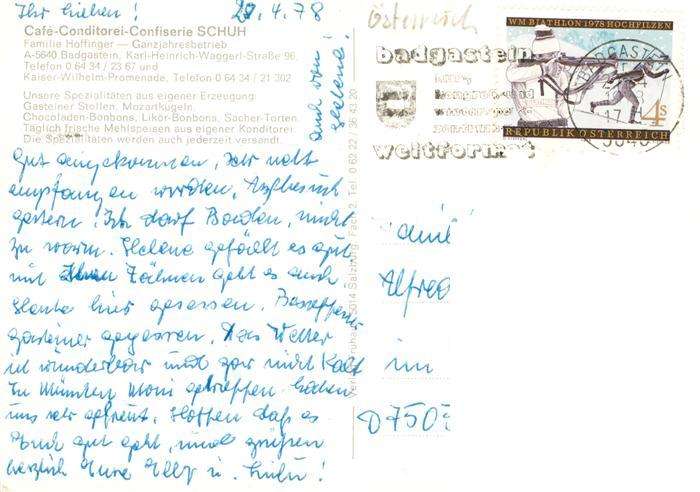 Ihr lieben! 20.4.78
Café-Conditorei-Confiserie SCHUH
Familie Hoffinger — Ganzjahresbetrieb
A-5640 Badgastein, Karl-Heinrich-Waggerl-Straße 96
Telefon 0 64 34 / 23 67 und
Kaiser-Wilhelm-Promenade, Telefon 0 64 34 / 21 302
Unsere Spezialitäten aus eigener Erzeugung:
Gasteiner Stollen, Mozartkugeln,
Chocoladen-Bonbons, Likör-Bonbons, Sacher-Torten.
Täglich frische Mehlspeisen aus eigener Konditorei.
Die Spezialitäten werden auch jederzeit versandt.
Gut angekommen, sehr nett
empfangen worden, Arztbesuch
gestern. Ich darf Baden, nicht
zu warm. Helene gefällt es gut
mit Zähnen geht es auch
Heute hier gesessen.
gasteiner gegessen. Das Wetter
ist wunderbar und gar nicht kalt
In München Moni getroffen haben
uns sehr gefreut. Hoffen daß es
Euch gut geht, und grüßen
herzlich Eure Elly u.
auch von
Helene!
Salzburg, Fach 2, Tel. 0 62 22 / 36 43 20
Österreich
badgastein
weltformat
WM BIATHLON 1978 HOCHFILZEN
4s
REPUBLIK ÖSTERREICH
Alfred
im
D 750